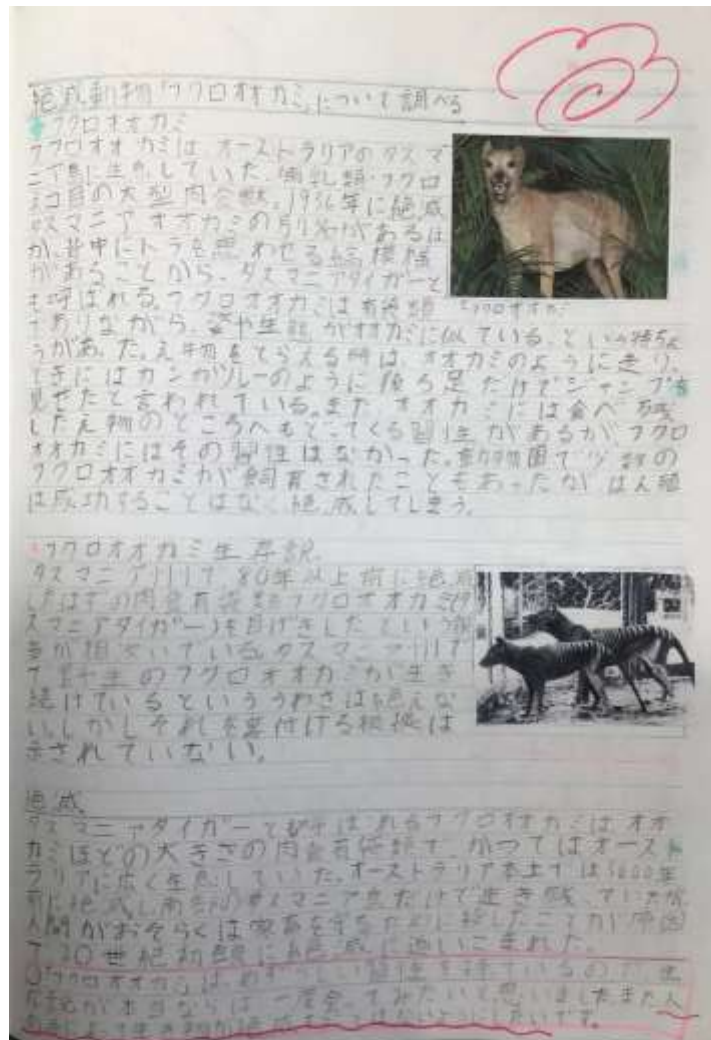 絶滅動物「フクロオオカミ」について調べる
フクロオオカミ
フクロオオカミは、オーストラリアのタスマ
ニア島に生息していた、哺乳類・フクロ
ネコ目の大型肉食獣。1936年に絶滅
タスマニアオオカミの別名があるほ
か、背中にトラを思わせる縞模様
があることから、タスマニアタイガーと
も呼ばれる。フクロオオカミは有袋類
でありながら、姿や生態がオオカミに似ている、という特ちょ
うがあった。え物をとらえる時は、オオカミのように走り、
ときにはカンガルーのように後ろ足だけでジャンプを
見せたと言われている。また、オオカミには食べ残
したえ物のところへもどってくる習性があるが、フクロ
オオカミにはその習性はなかった。動物園で少数の
フクロオオカミが飼育されたこともあったが、はん殖
は成功することはなく絶滅してしまう。
フクロオオカミ
フクロオオカミ生存説
タスマニア州で、80年以上前に絶滅
したはずの肉食有袋類フクロオオカミ(タ
スマニアタイガー)を目げきしたという報
告が相次いでいる。タスマニア州で
で野生のフクロオオカミが生き
続けているといううわさは絶えな
い。しかしそれを裏付ける根拠は
示されていない。
絶滅
タスマニアタイガーとも呼ばれるフクロオオカミは、オオ
カミほどの大きさの肉食有袋類で、かつてはオースト
ラリアに広く生息していた。オーストラリア本土では
前に絶滅し、南部のタスマニア島だけで生き残っていたが、
人間がおそらくは家畜を守るために殺したことが原因
で20世紀初頭に絶滅に追いこまれた。
フクロオオカミは、めずらしい習性を持っているので、生
存説が本当ならば一度会ってみたいと思いました。また、人
によって生き物が絶滅することはないようにしたいです。